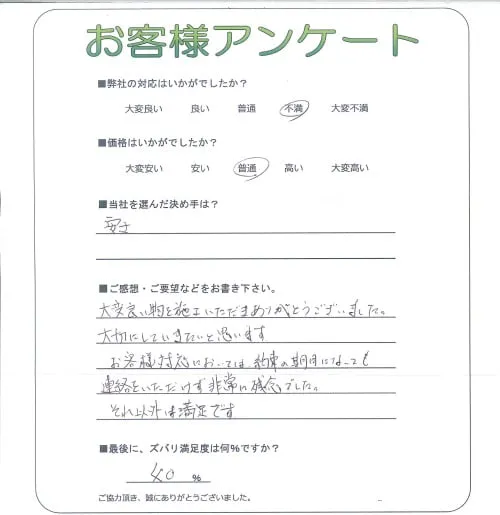 お客様アンケート
■弊社の対応はいかがでしたか？
大変良い 良い 普通 不満 大変不満
■価格はいかがでしたか？
大変安い 安い 普通 高い 大変高い
■当社を選んだ決め手は？
安さ
■ご感想・ご要望などをお書き下さい。
大変良い物を施工いただきありがとうございました。
大切にしていきたいと思います
お客様対応においては約束の期日になっても
連絡をいただけず非常に残念でした。
それ以外は満足です
■最後に、ズバリ満足度は何％ですか？
40 ％
ご協力頂き、誠にありがとうございました。